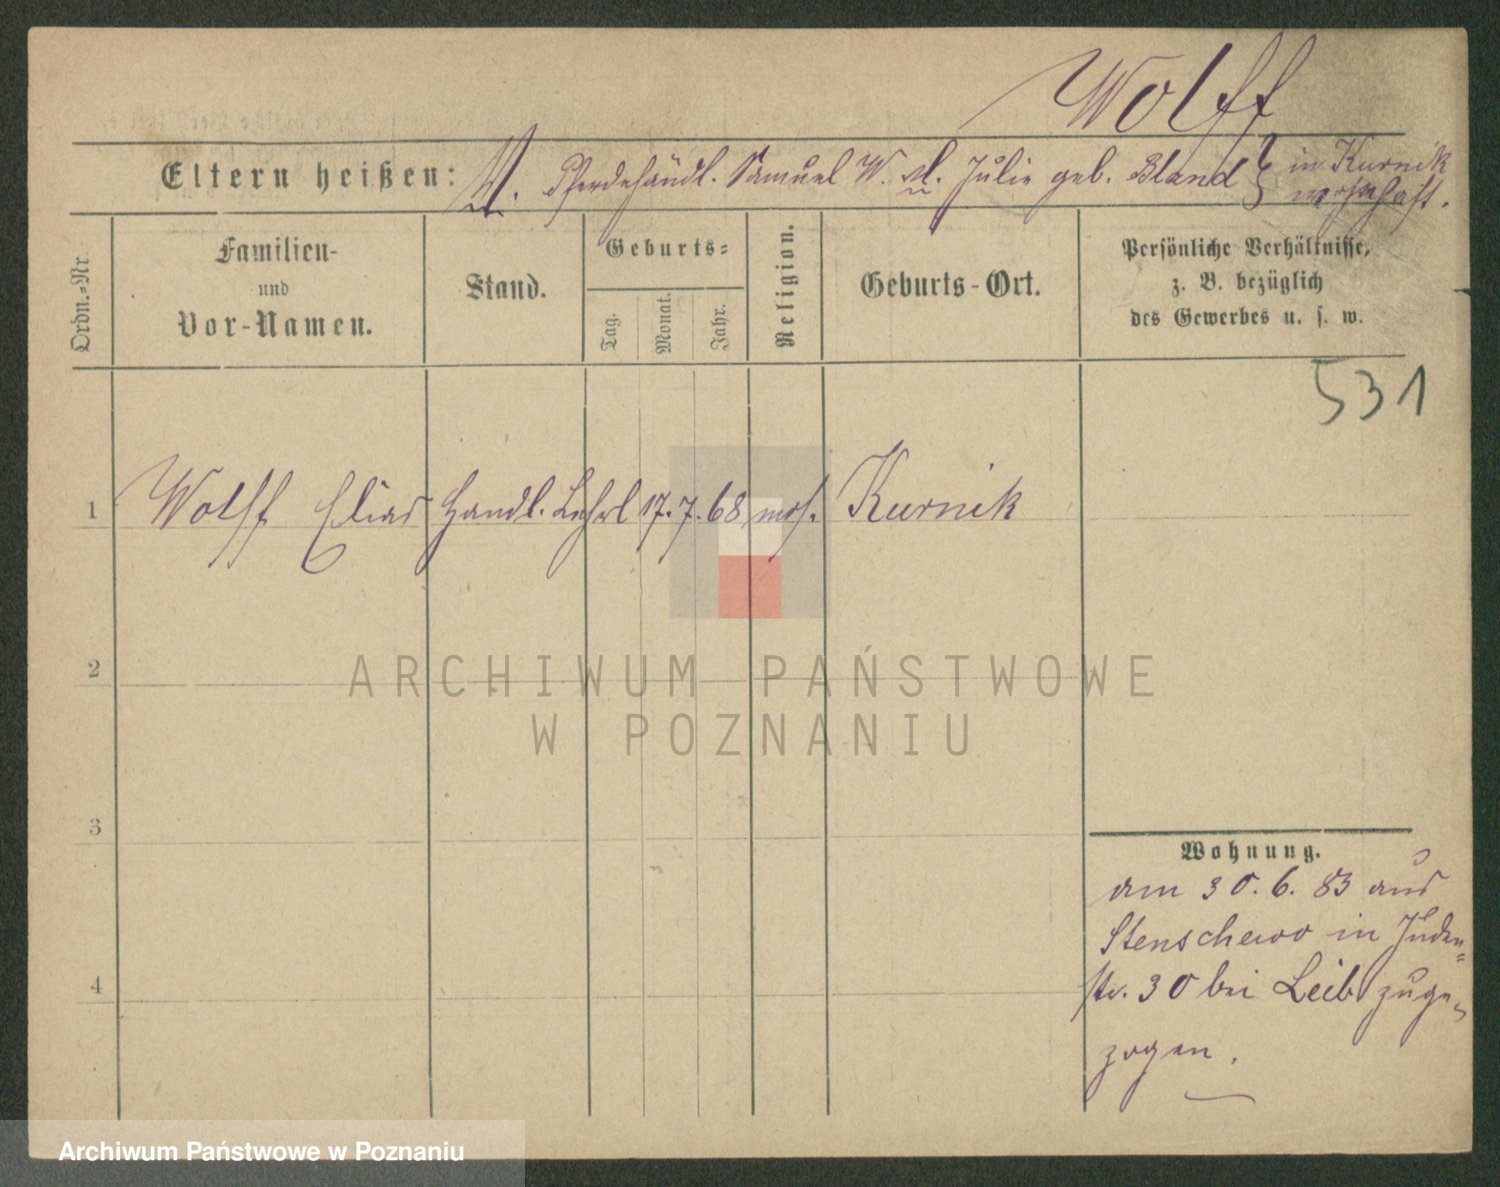 Wolff
Eltern heißen: Pferdehändl. Samuel W. u. Julie geb. Bland } in Kurnik
wohnhaft.
Ordn.-Nr.
Familien-
und
Vor-Namen.
Stand.
Geburts-
Tag.
Monat.
Jahr.
Religion.
Geburts-Ort.
Persönliche Verhältnisse,
z. B. bezüglich
des Gewerbes u. s. w.
531
1 Wolff Elias Handl. Lehrl 17. 7. 68 mos. Kurnik
2
3
4
Wohnung.
am 30. 6. 83 aus
Stenschewo in Juden=
str. 30 bei Leib zuge-
zogen.
ARCHIWUM PAŃSTWOWE
W POZNANIU
Archiwum Państwowe w Poznaniu